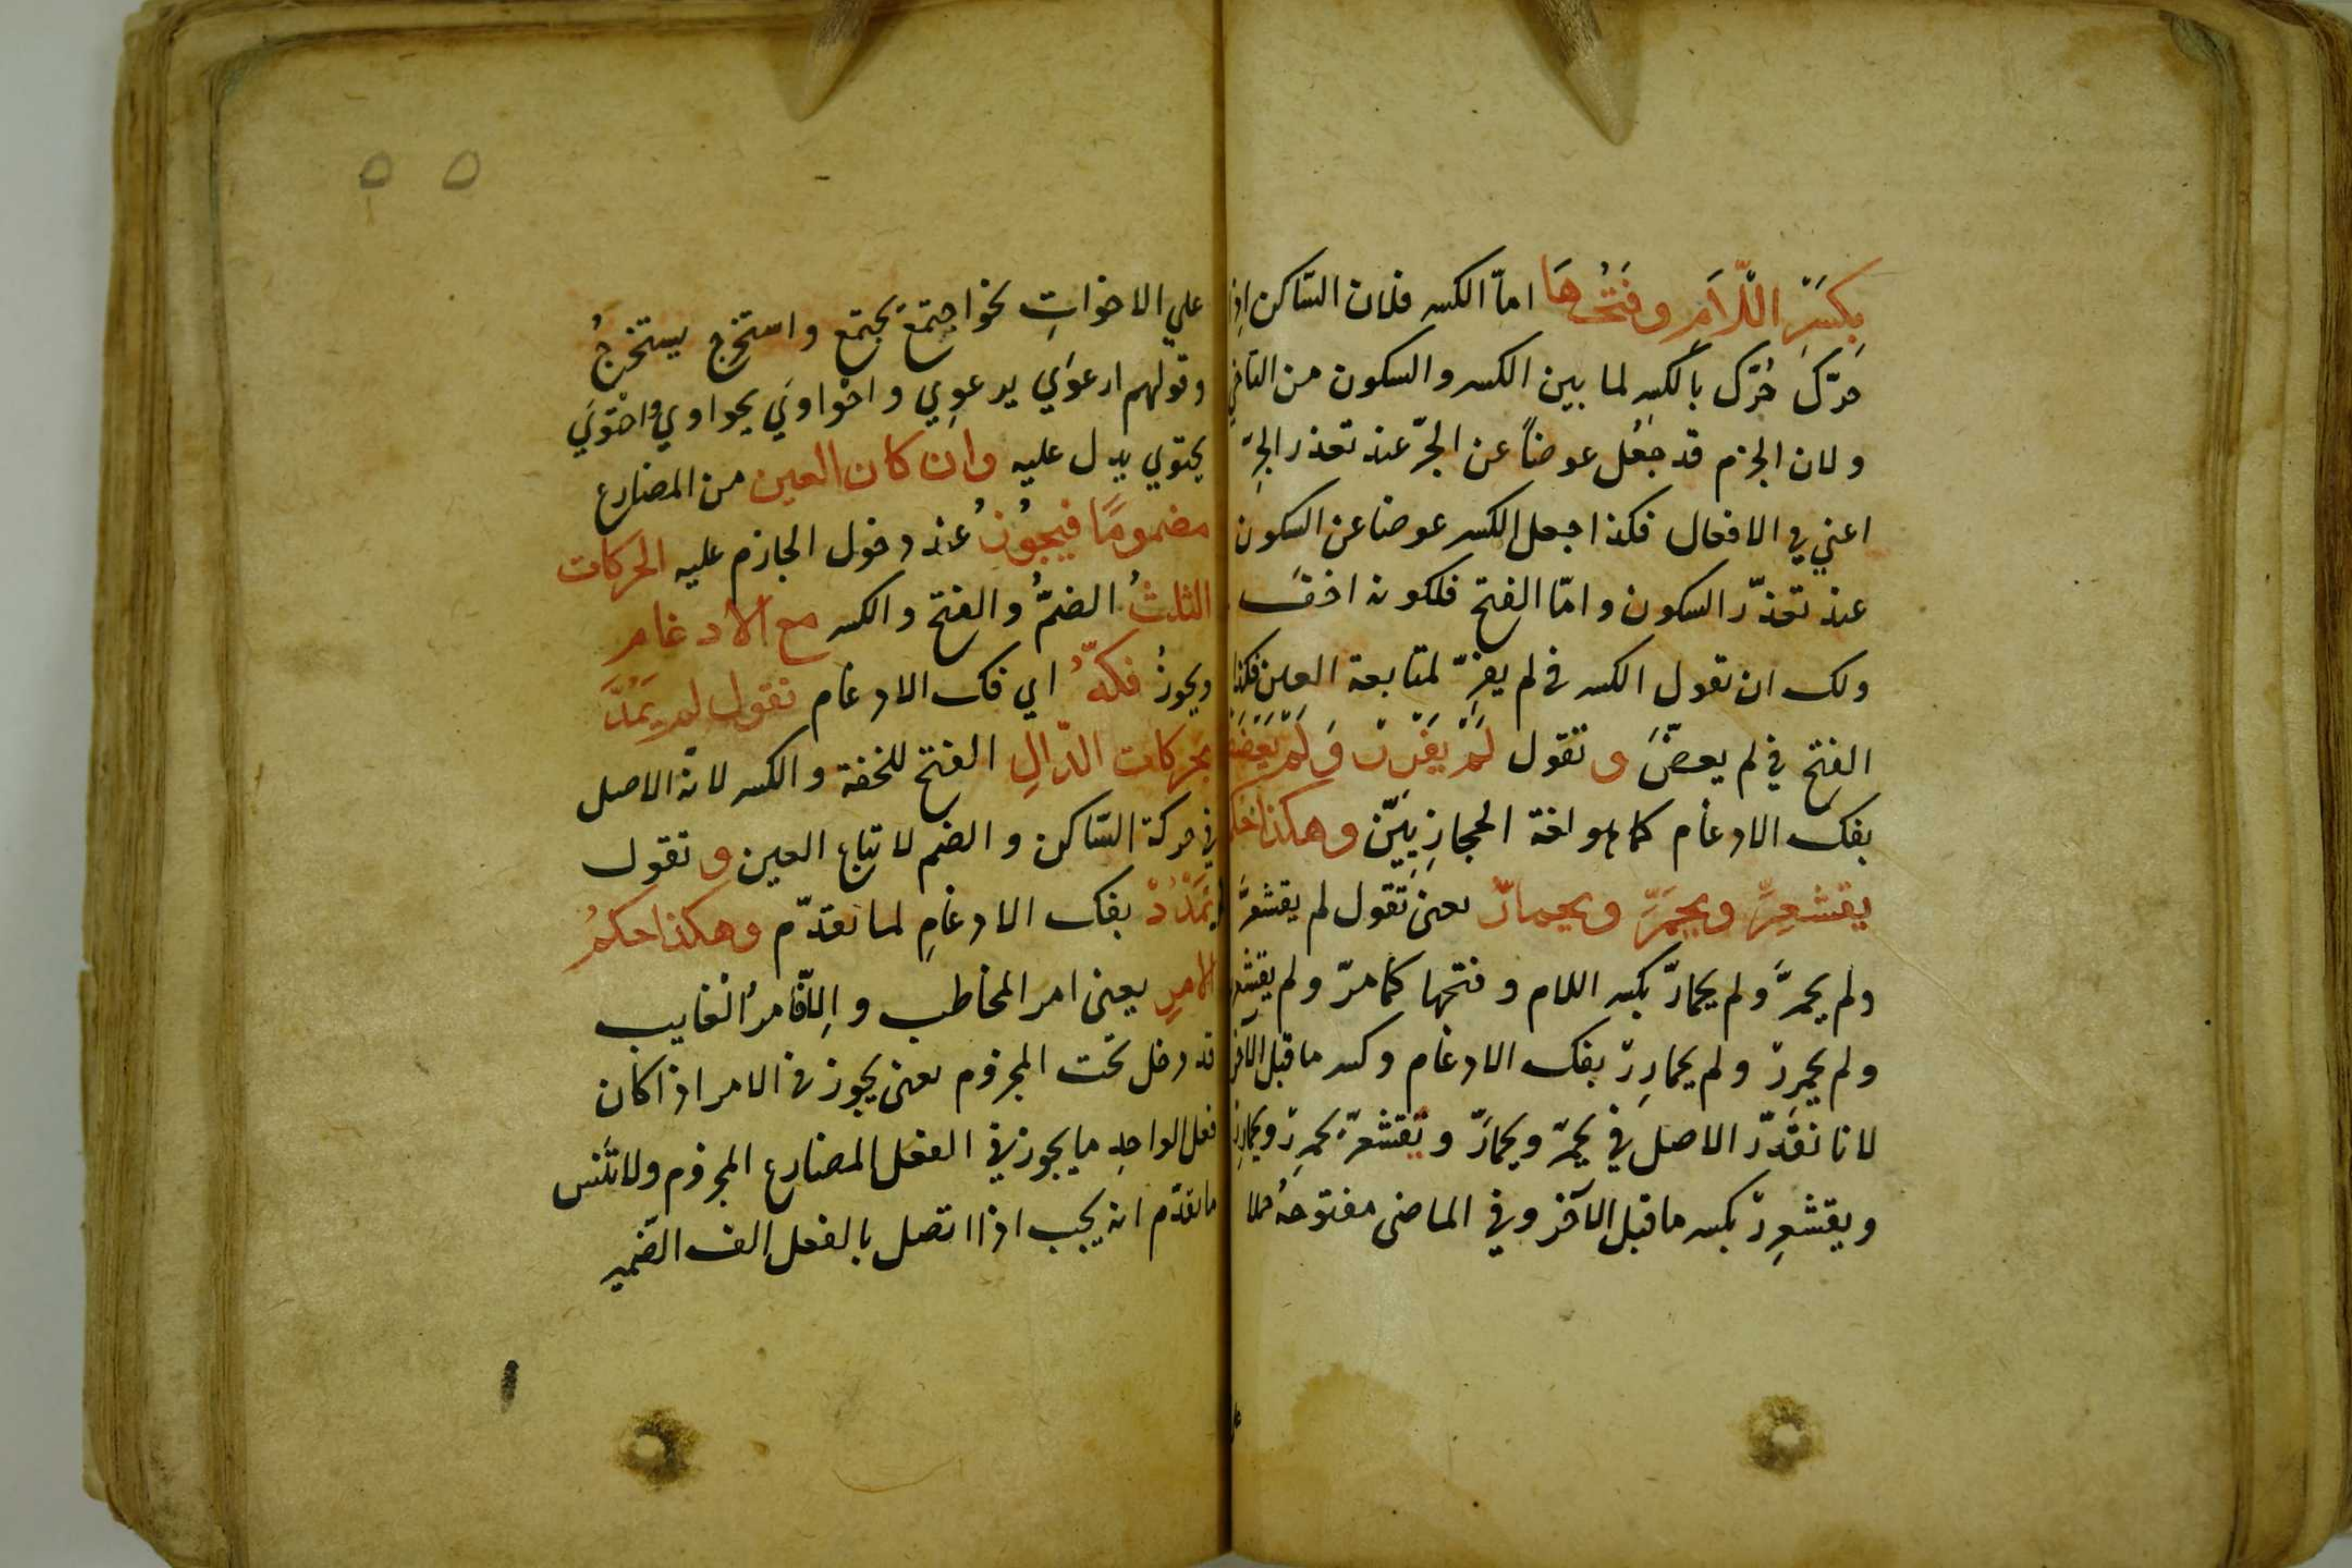 بِكَسْرِ اللّامِ وفَتْحُهَا امّا الكسر فلان السّاكن اذا
حرّك حُرّك بالكسر لما بين الكسر والسكون من التآخي
ولان الجزم قد جعل عوضاً عن الجرّ عند تعذر الجرِّ
اعني في الافعال فكذا جعل الكسر عوضا عن السكون
عند تعذّر السكون وامّا الفتح فلكونه اخفّ
ولك ان تقول الكسر في لم يفرِّ لمتابعة العين فكذا
الفتح في لم يعضَّ و تقول لَمْ يَفْرِرْ وَلَمْ يَعْضَضْ
بفك الادغام كما هو لغة الحجازِيِيّن وهكذا حكم
يقشعِرّ ويحمَرّ ويحمارّ يعنى تقول لم يقشعرَّ
ولم يحمرَّ ولم يحمارّ بكسر اللام وفتحها كما مرّ ولم يقشعرر
ولم يحمررْ ولم يحمارِرْ بفك الادغام وكسر ما قبل الآخر
لانا نقدّر الاصل في يحمرّ ويحمارّ ويقشعرّ يحمرِرْ ويحمارِرْ
ويقشعرِرْ بكسر ما قبل الآخر وفي الماضى مفتوحهُ حملا
٥٥
علي الاخواتِ نحو اجتمَعَ يجتمِع واستخرج يستخرجُ
وقولهم ارعوَي يرعوِي واحْواوَي يحواوي واحْتوَي
يحتوي يدل عليه وان كان العين من المضارع
مضمومًا فيجُوزُ عند دخول الجازم عليه الحركات
الثلثُ الضمُّ والفتح والكسر مع الادغام
ويجوزُ فكّهُ اي فك الادغام تقول لم يَمُدَّ
بحركات الدّالِ الفتح للخفة والكسر لانه الاصل
في حركة السّاكن والضم لاتباع العين و تقول
لم يَمْدُدْ بفك الادغامِ لما تقدّم وهكذا حكمُ
الامرِ يعنى امر المخاطب والّا فامرُ الغايب
قد دخل تحت المجزوم يعنى يجوز في الامر اذا كان
فعل الواحِدِ ما يجوز في الفعل المضارع المجزوم ولا تنس
ما تقدّم انه يجب اذا اتصل بالفعل الف الضّمير